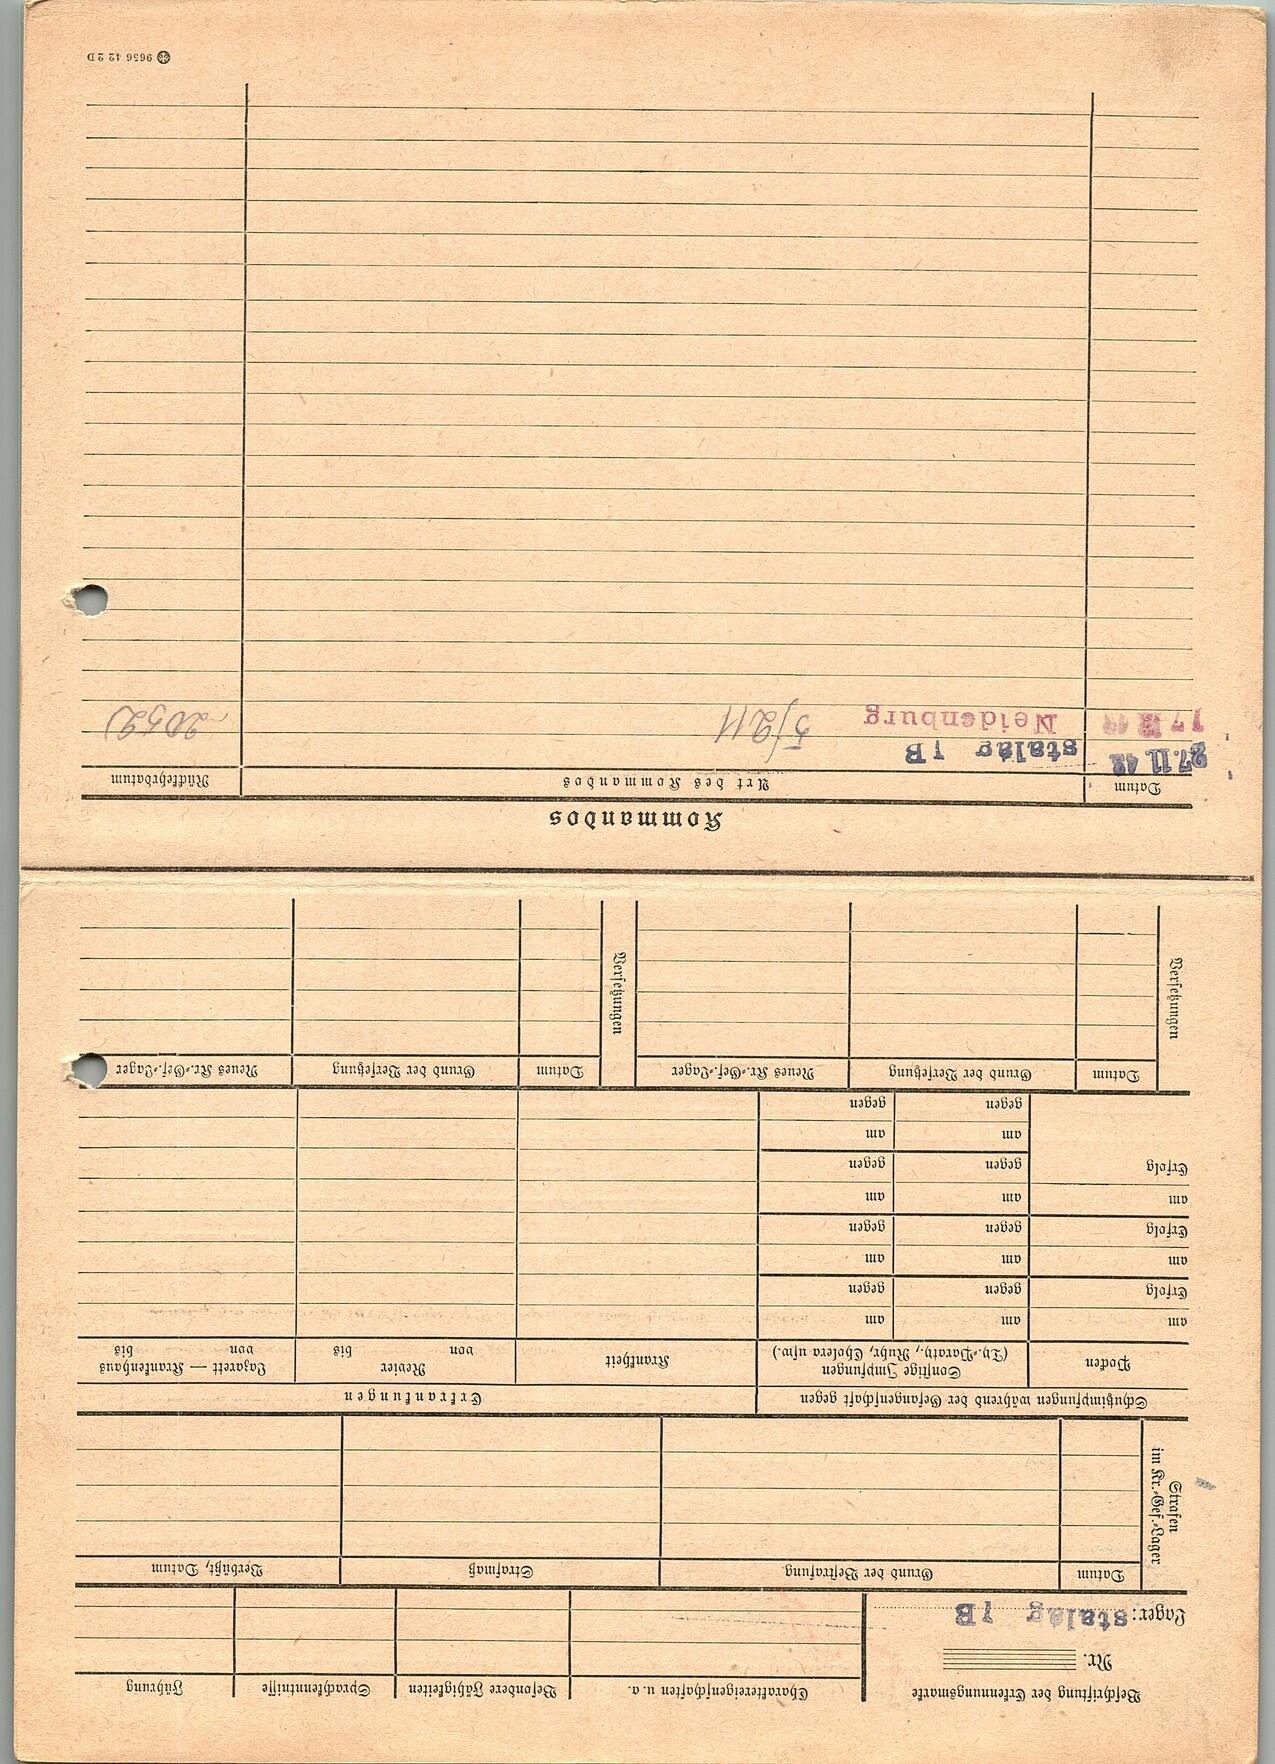 Beschriftung der Erkennungsmarke
Nr.
Lager: stalag 1B
Charaktereigenschaften u. a.
Besondere Fähigkeiten
Sprachkenntnisse
Führung
Strafen im Kr.-Gef.-Lager
Datum
Grund der Bestrafung.
Strafmaß
Verbüßt, Datum
Schutzimpfungen während der Gefangenschaft gegen
Erkrankungen
Pocken
Sonstige Impfungen
(Ty.-Paraty., Ruhr, Cholera usw.)
Krankheit
Revier
von bis
Lazarett — Krankenhaus
von bis
am am am
Erfolg gegen gegen
am am am
Erfolg gegen gegen
am am am
Erfolg gegen gegen
am am
gegen gegen
Versetzungen
Datum
Grund der Versetzung
Neues Kr.-Gef.-Lager
Versetzungen
Datum
Grund der Versetzung
Neues Kr.-Gef.-Lager
Kommandos
Datum
Art des Kommandos
Rückkehrdatum
27.11.42 stalag 1B
Neidenburg 5/211
9656 42 2 D